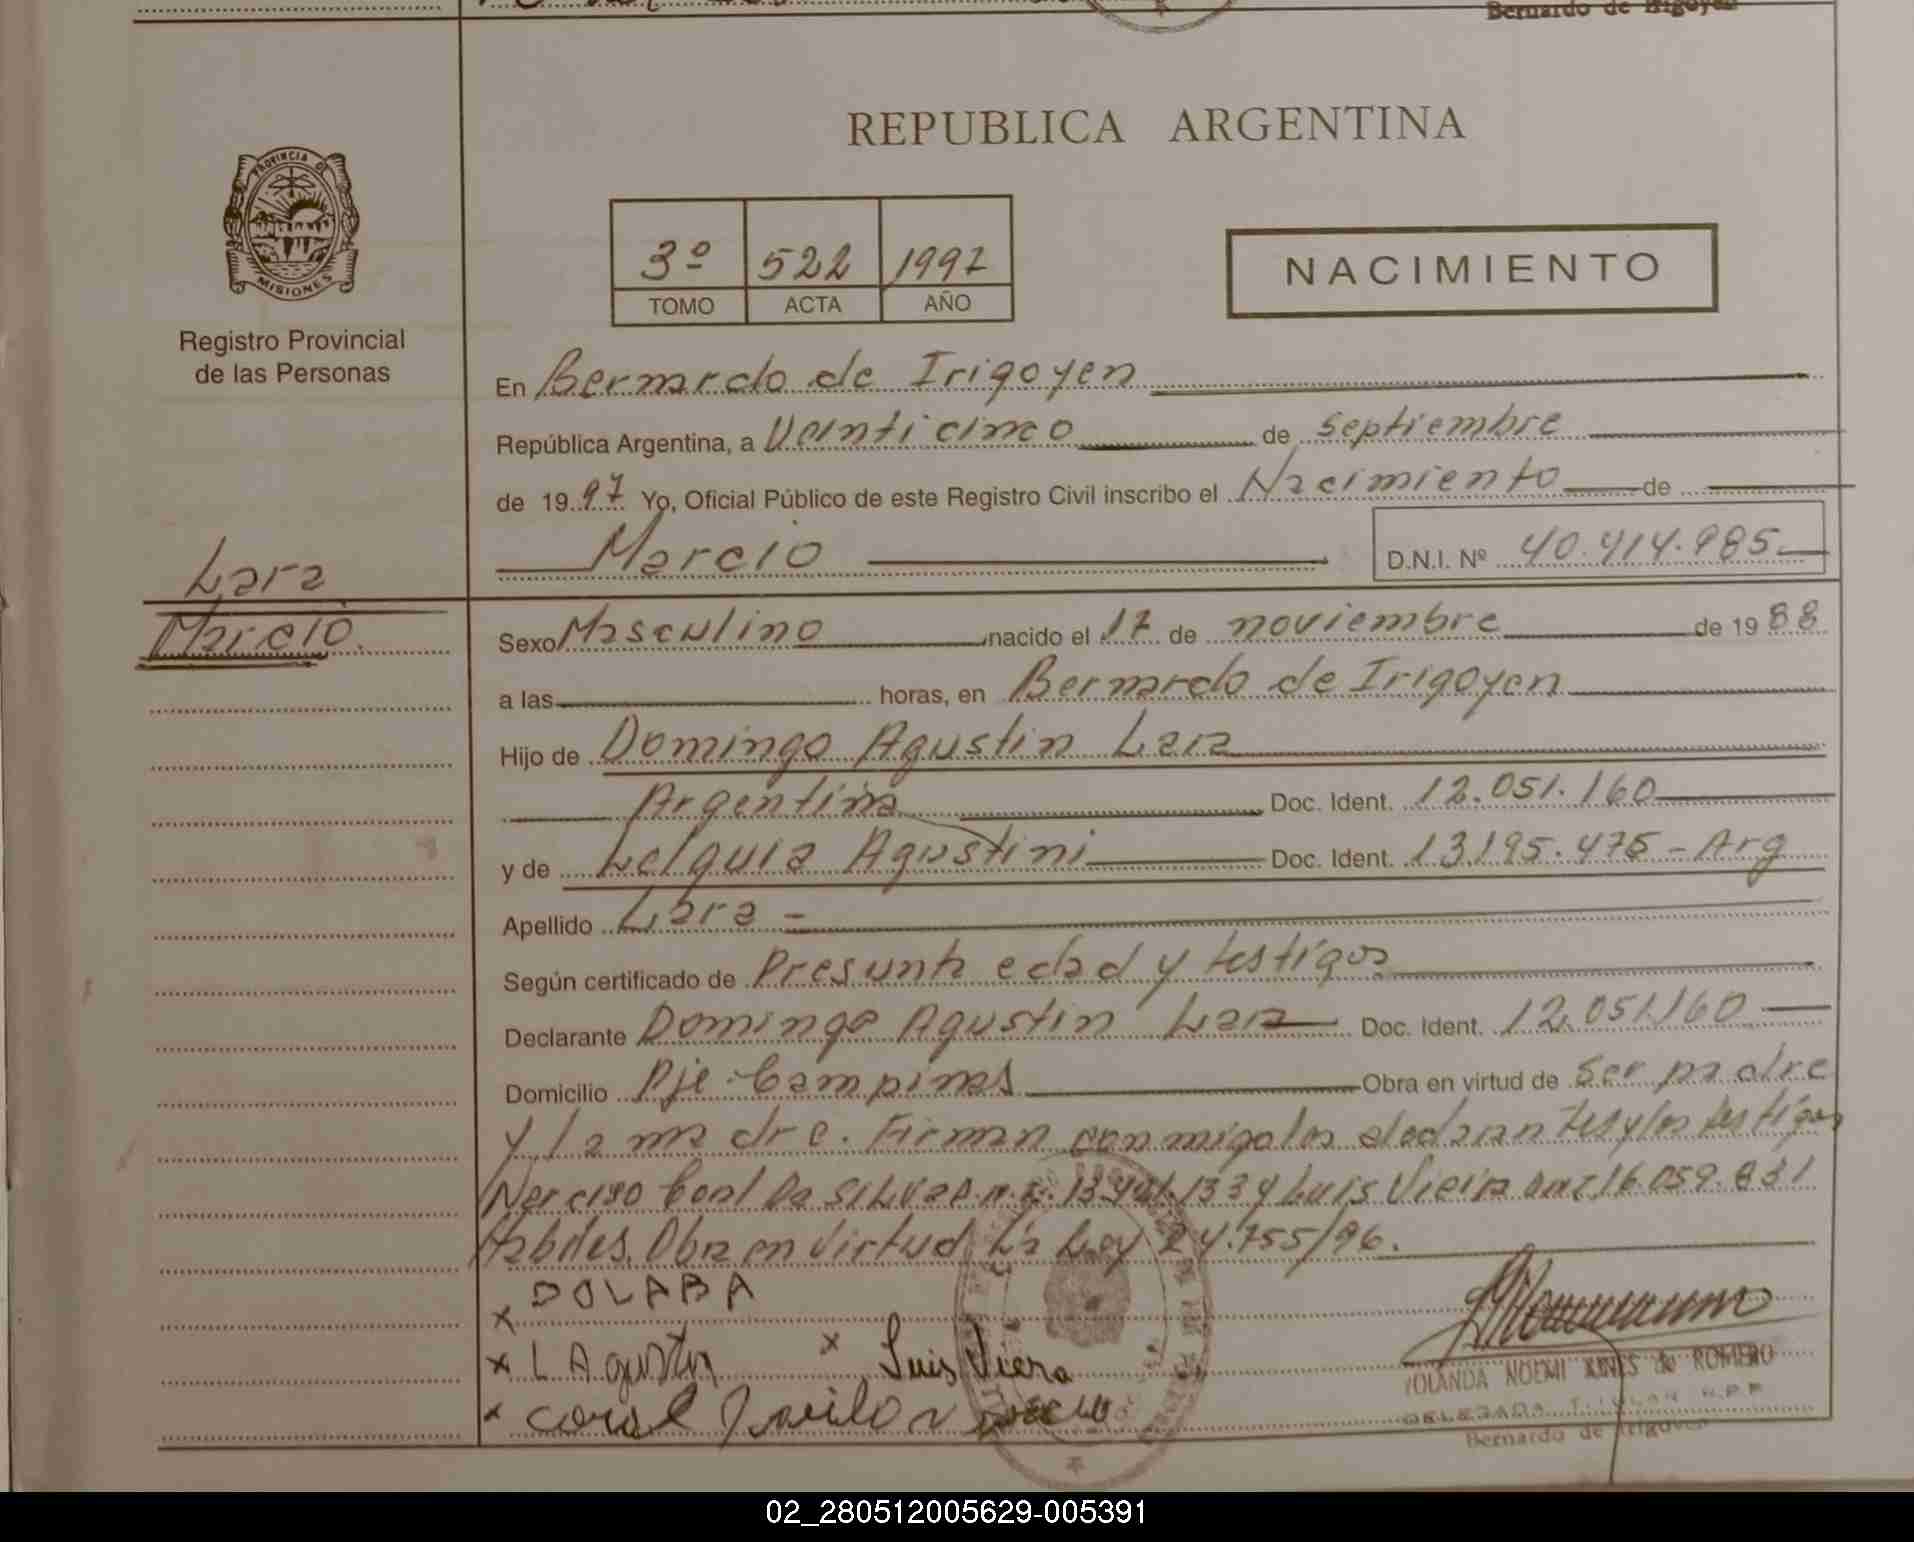 Bernardo de Irigoyen
REPUBLICA ARGENTINA
PROVINCIA DE
MISIONES
Registro Provincial
de las Personas
3º 522 1997
TOMO ACTA AÑO
NACIMIENTO
En Bernardo de Irigoyen
República Argentina, a Veinticinco de septiembre
de 1997 Yo, Oficial Público de este Registro Civil inscribo el Nacimiento de
Marcio D.N.I. Nº 40.414.985
Lara
Marcio.
Sexo Masculino nacido el 17 de noviembre de 1988
a las horas, en Bernardo de Irigoyen
Hijo de Domingo Agustin Lara
Argentina Doc. Ident. 12.051.160
y de Agustini Doc. Ident. 13.195.475 - Arg
Apellido Lara -
Según certificado de Presunta edad y testigos
Declarante Domingo Agustin Lara Doc. Ident. 12.051.160
Domicilio Pje. Campinas Obra en virtud de Ser padre
y la madre. Firman conmigo los declarantes y los testigos
Narciso Coral Da Silva y Luis Vieira 16.059.831
Habiles. Obra en virtud La Ley 24.755/96.
x DOLARA
x L Agustin x Luis Viera
x coral
YOLANDA NOEMI de ROMERO
DELEGADA TITULAR R.P.P.
Bernardo de Irigoyen
02_280512005629-005391